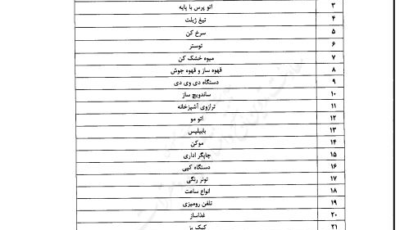 ۳ اتو پرس با پایه
۴ تیغ ژیلت
۵ سرخ کن
۶ توستر
۷ میوه خشک کن
۸ قهوه ساز و قهوه جوش
۹ دستگاه دی وی دی
۱۰ ساندویچ ساز
۱۱ ترازوی آشپزخانه
۱۲ اتو مو
۱۳ بابیلیس
۱۴ موکن
۱۵ چاپگر اداری
۱۶ دستگاه کپی
۱۷ تونر رنگی
۱۸ انواع ساعت
۱۹ تلفن رومیزی
۲۰ غذاساز
۲۱ کیک پز